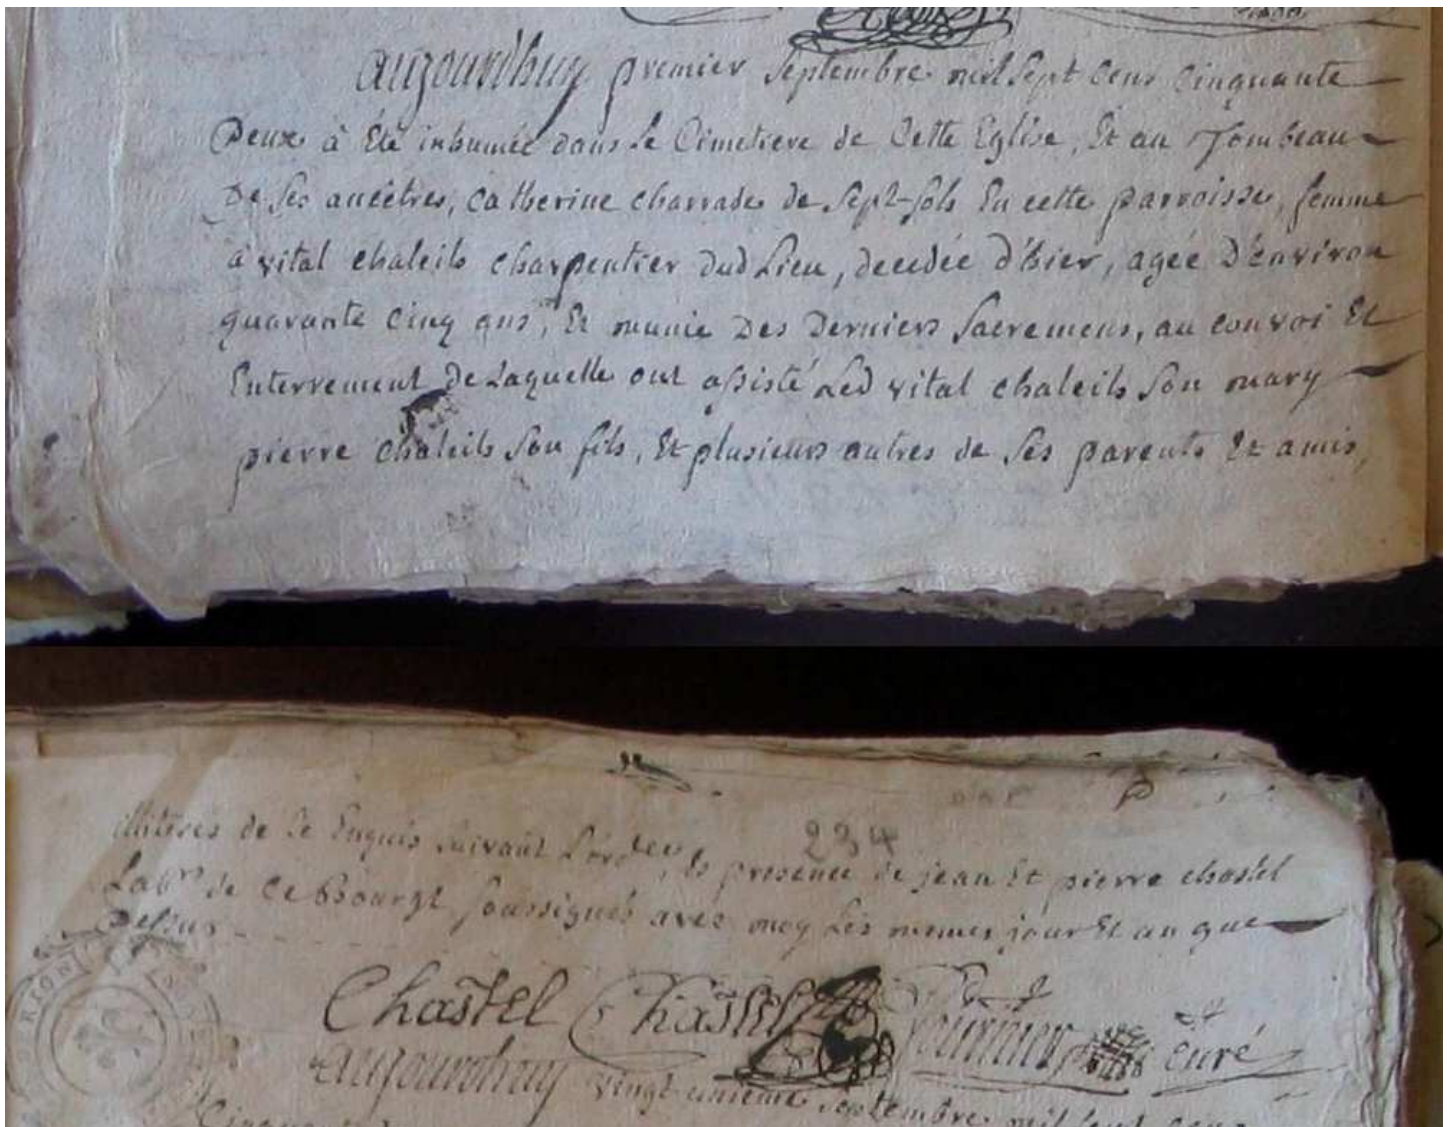 aujourdhuy premier septembre mil sept cens cinquante
Deux à Eté inhumée dans le Cimetiere de Cette Eglise, Et au Tombeau
De ses ancêtres, catherine charrade de sept-sols En cette parroisse, femme
à vital chaleils charpentier dud Lieu, decedée d'hier, agée D'environ
quarante cinq ans, Et munie Des Derniers Sacremens, au convoi Et
Enterrement de Laquelle ont assisté Led vital chaleils son mary
pierre chaleils son fils, Et plusieurs autres de ses parents Et amis,
234
illiteres de ce Enquis suivant L'ordce, Es presence de jean Et pierre chastel
Labrs de ce Bourgt soussignés avec moy Les memes jour Et an que
Dessus
Chastel Chastel fournier curé
aujourdhuy vingt unieme septembre mil sept cens
Cinquante